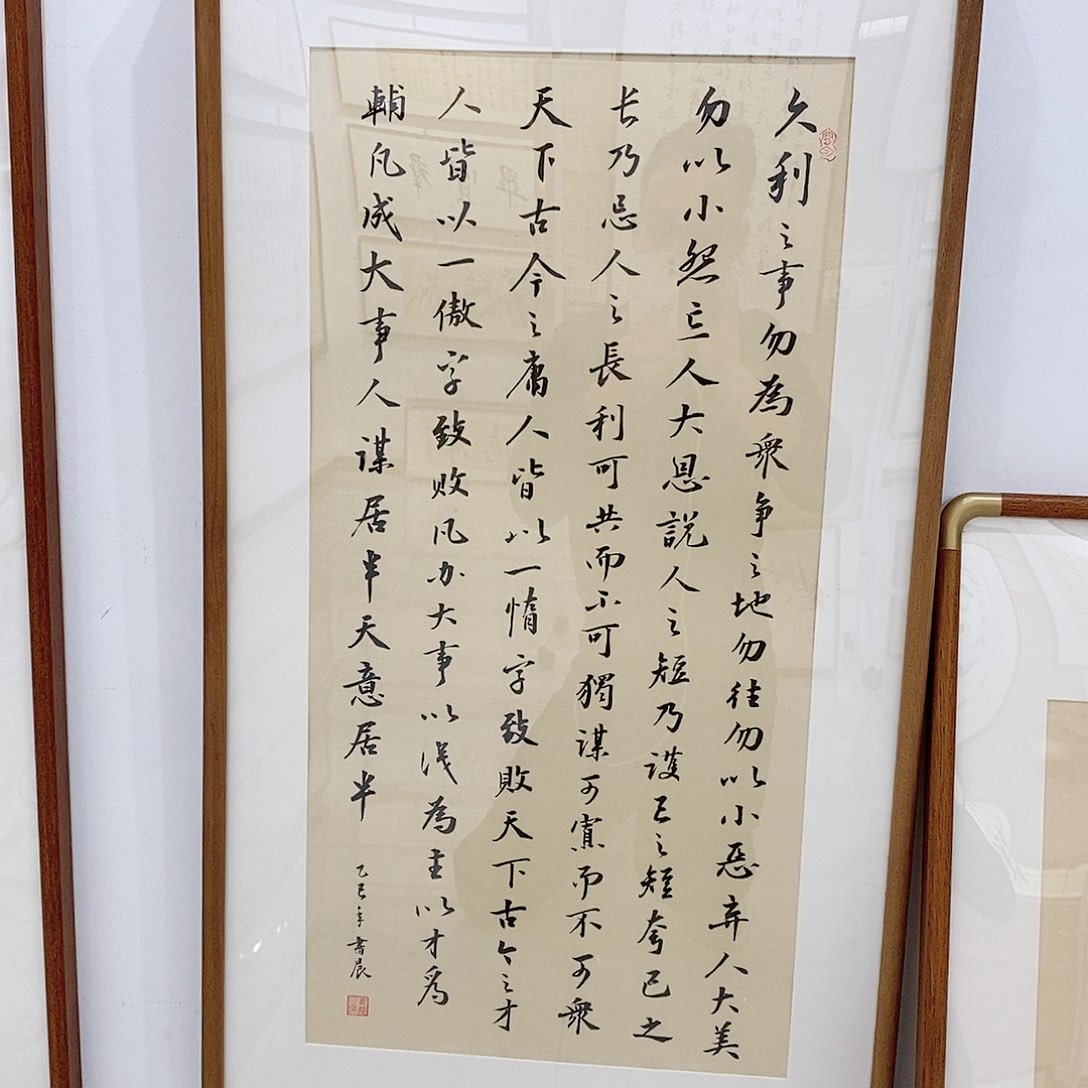 久利之事勿為衆争之地勿往勿以小惡弃人大美
勿以小怨忘人大恩說人之短乃護己之短夸己之
长乃忌人之長利可共而不可獨謀可寡而不可衆
天下古今之庸人皆以一惰字致敗天下古今之才
人皆以一傲字致败凡办大事以識為主以才為
輔凡成大事人謀居半天意居半
乙巳年書晨